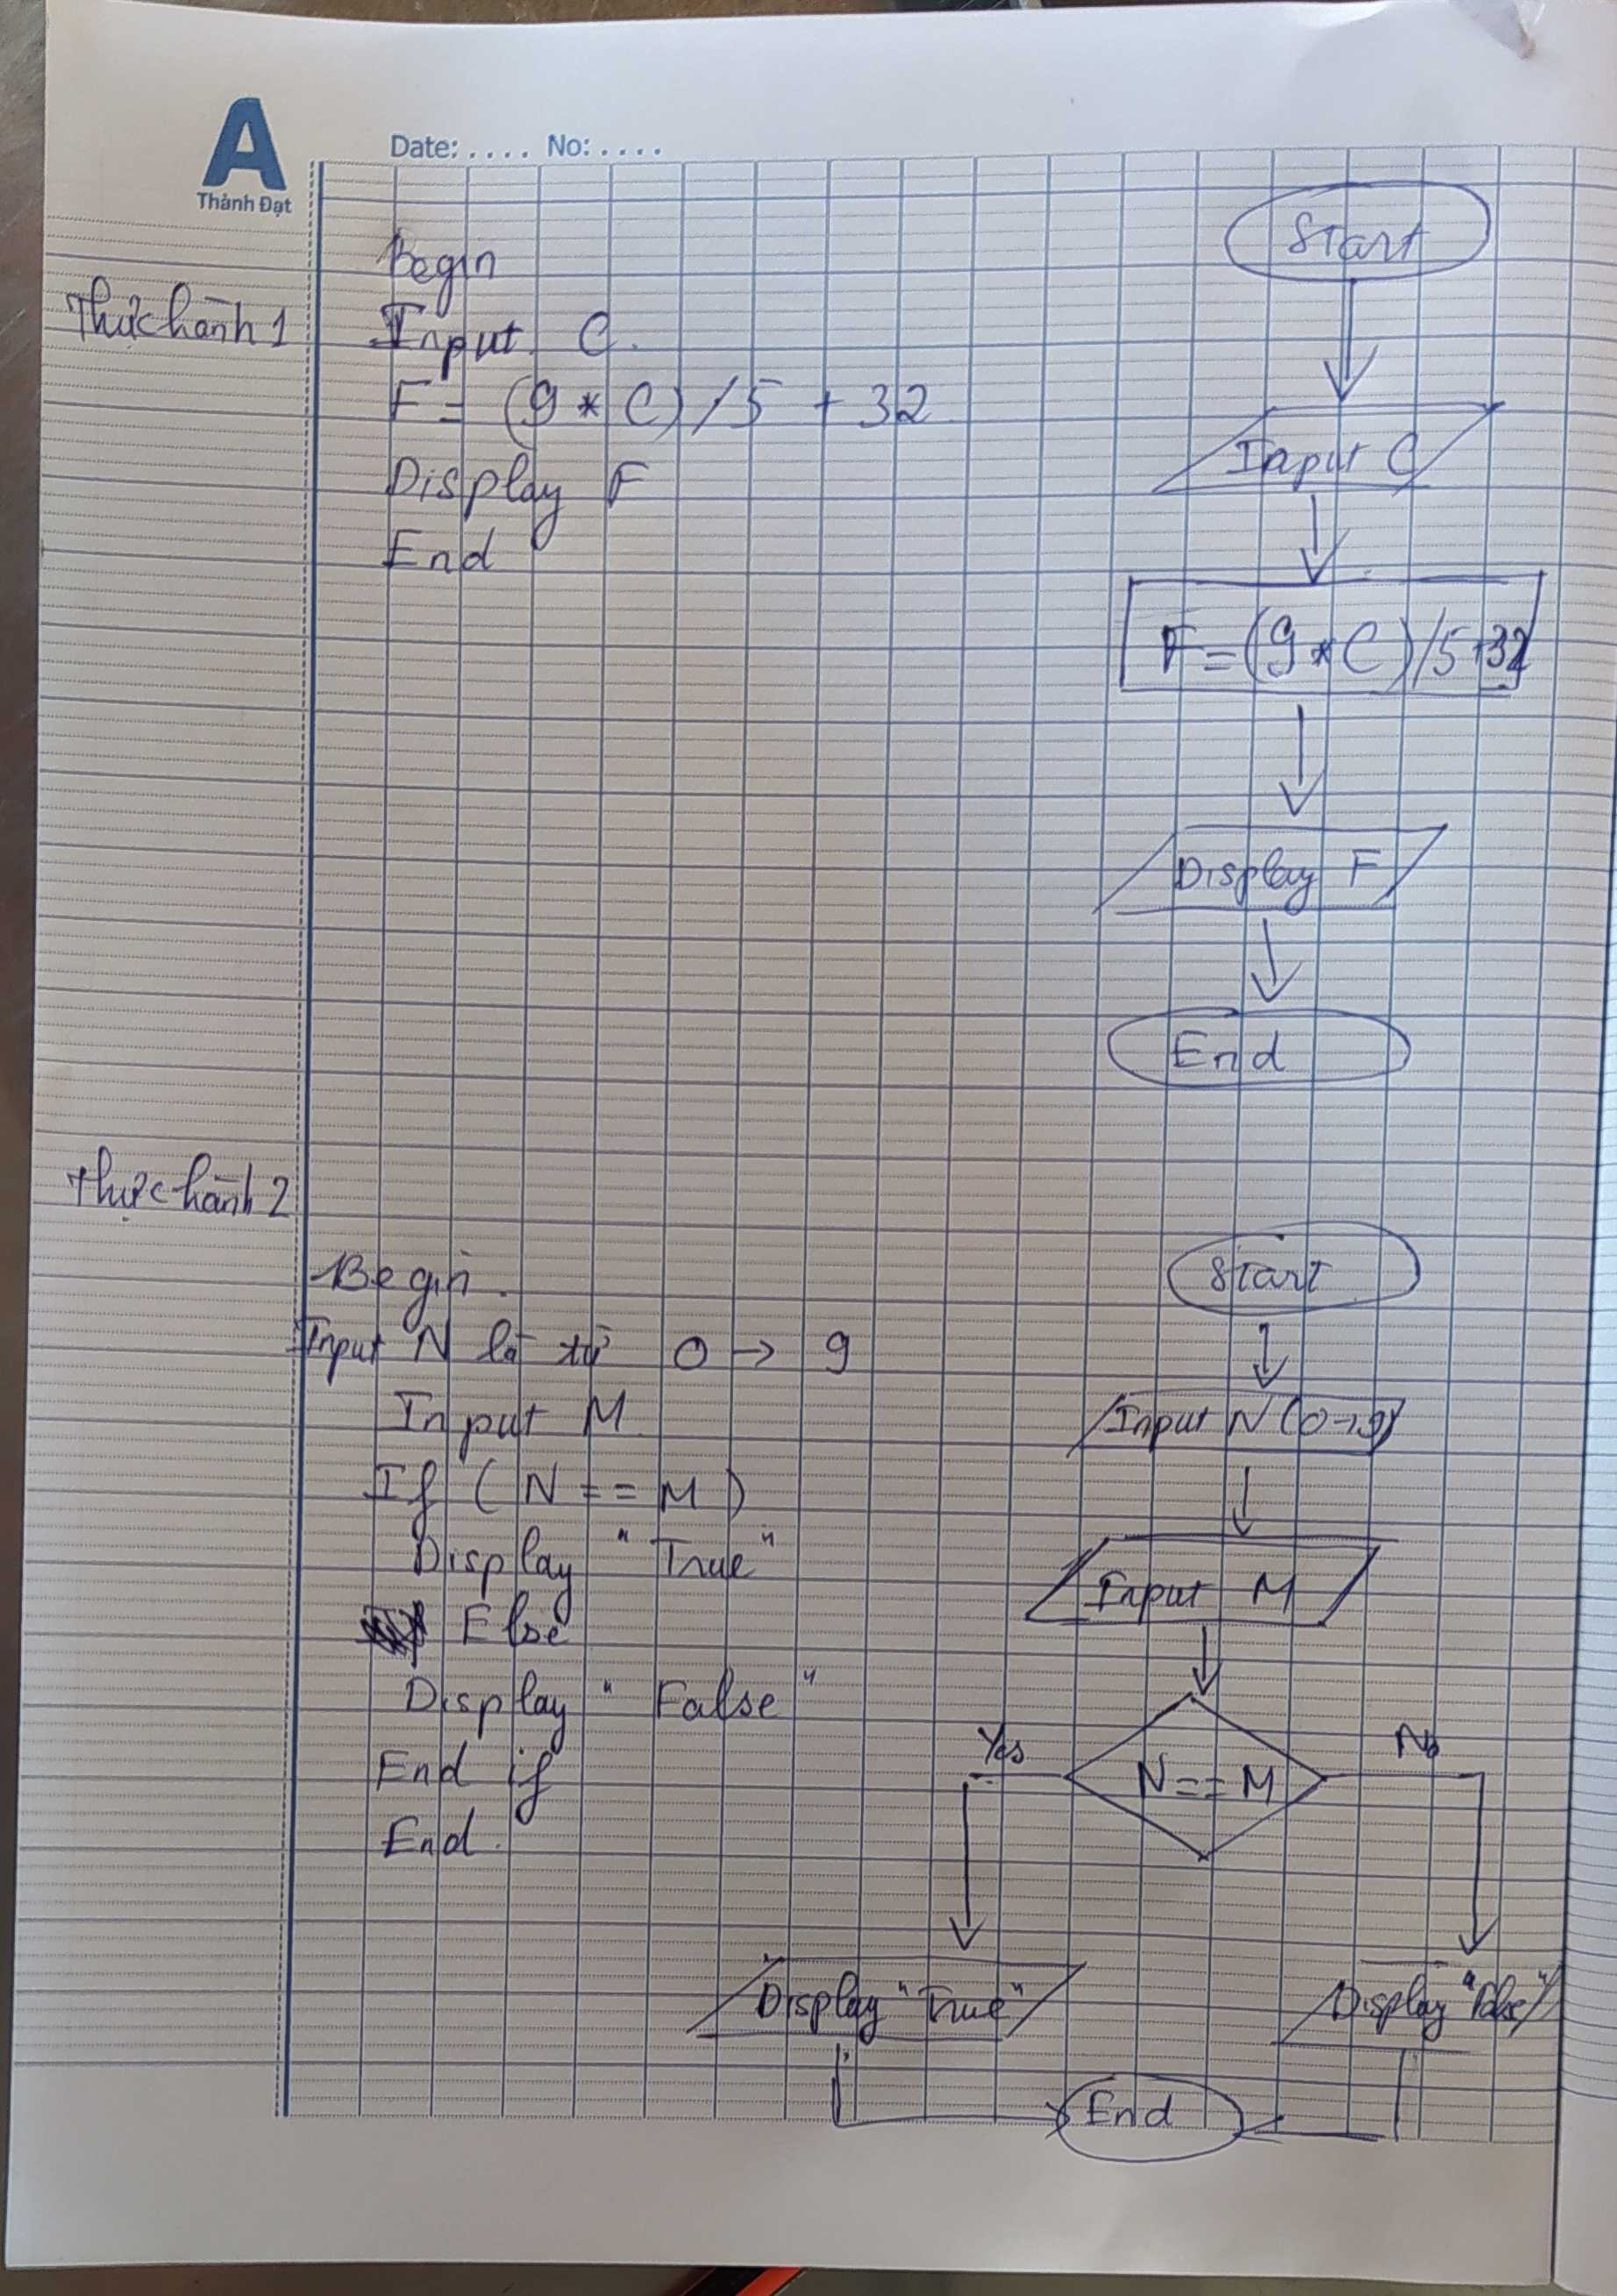 A
Thành Đạt
Date: .... No: ....
Thực hành 1
Begin
Input C.
F = (9 * C) / 5 + 32
Display F
End
Start
Input C
F = (9 * C) / 5 + 32
Display F
End
Thực hành 2
Begin.
Input N là từ 0 → 9
Input M
If ( N == M )
Display "True"
Else
Display "False"
End if
End.
Start
Input N (0→9)
Input M
N == M
Yes
No
Display "True"
Display "False"
End